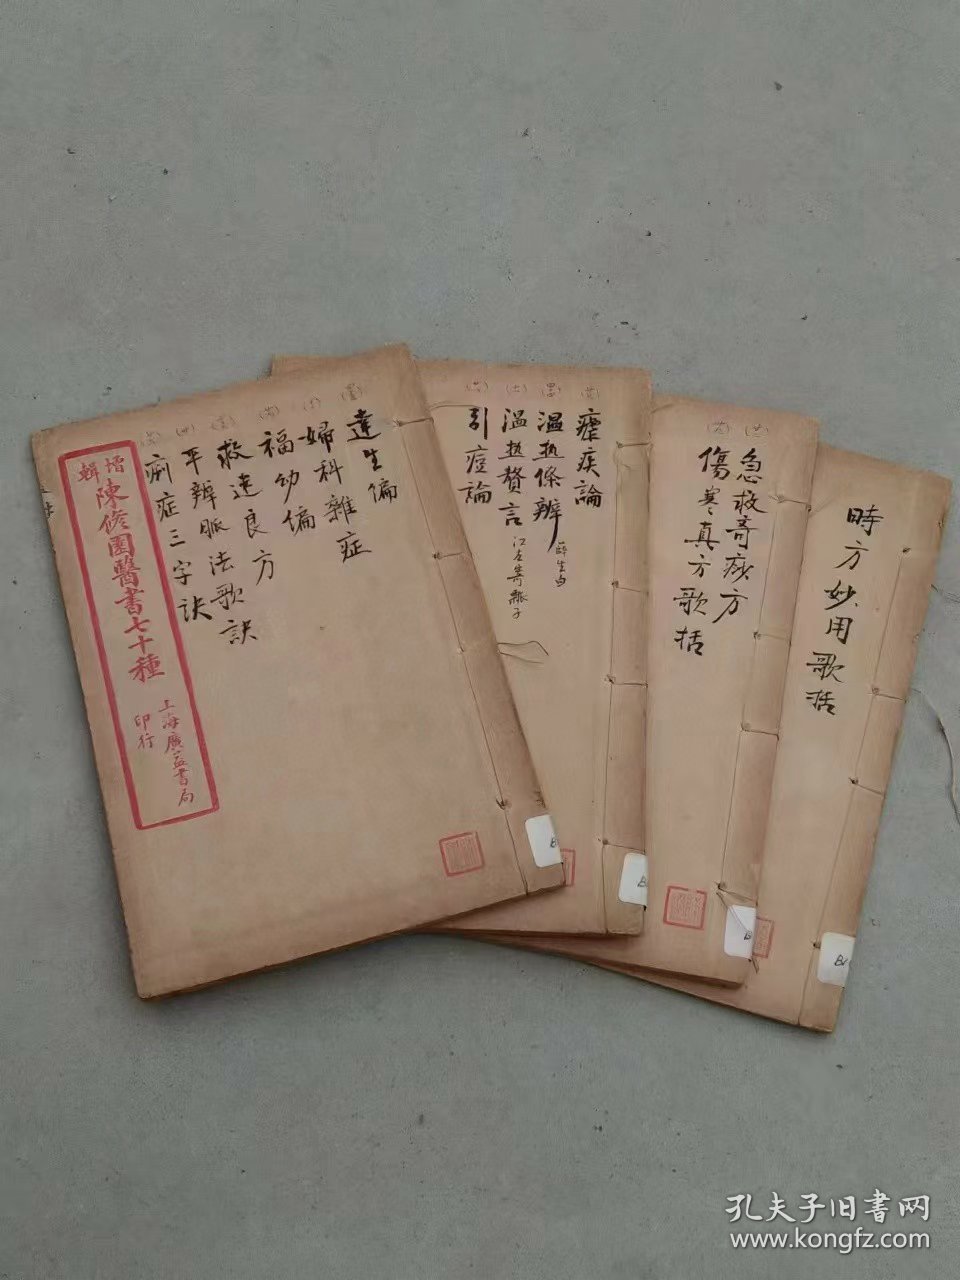 增輯
陳修園醫書七十種
上海廣益書局
印行
達生偏
婦科雜症
福幼偏
救迷良方
平辨脈法歌訣
痢症三字訣
瘧疾論
溫熱條辨
薛生白
溫熱贅言
江左寄瓢子
引痘論
急救奇痧方
傷寒真方歌括
時方妙用歌括
孔夫子旧書网
www.kongfz.com